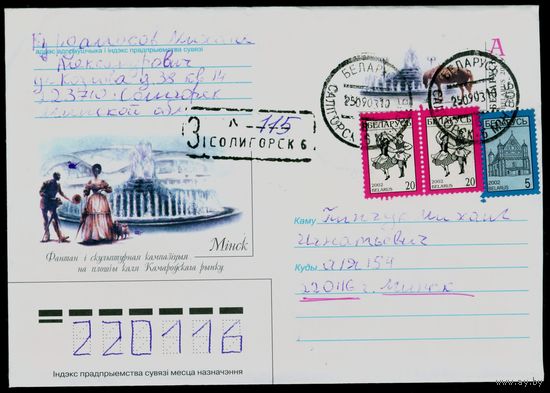 адрас адпраўшчыка і індэкс прадпрыемства сувязі
ул. д 38 кв 14
223710
А
БЕЛАРУСЬ
250903
БЕЛАРУСЬ
250903
З
115
СОЛИГОРСК 6
БЕЛАРУСЬ
2002
BELARUS
20
БЕЛАРУСЬ
2002
BELARUS
20
БЕЛАРУСЬ
2002
BELARUS
5
Мінск
Фантан і скульптурная кампазіцыя
на плошчы каля Камароўскага рынку
Каму Пинчук Михаил
Игнатьевич
Куды а/я 154
220116 г. Минск
220116
Індэкс прадпрыемства сувязі месца назначэння
www.ay.by